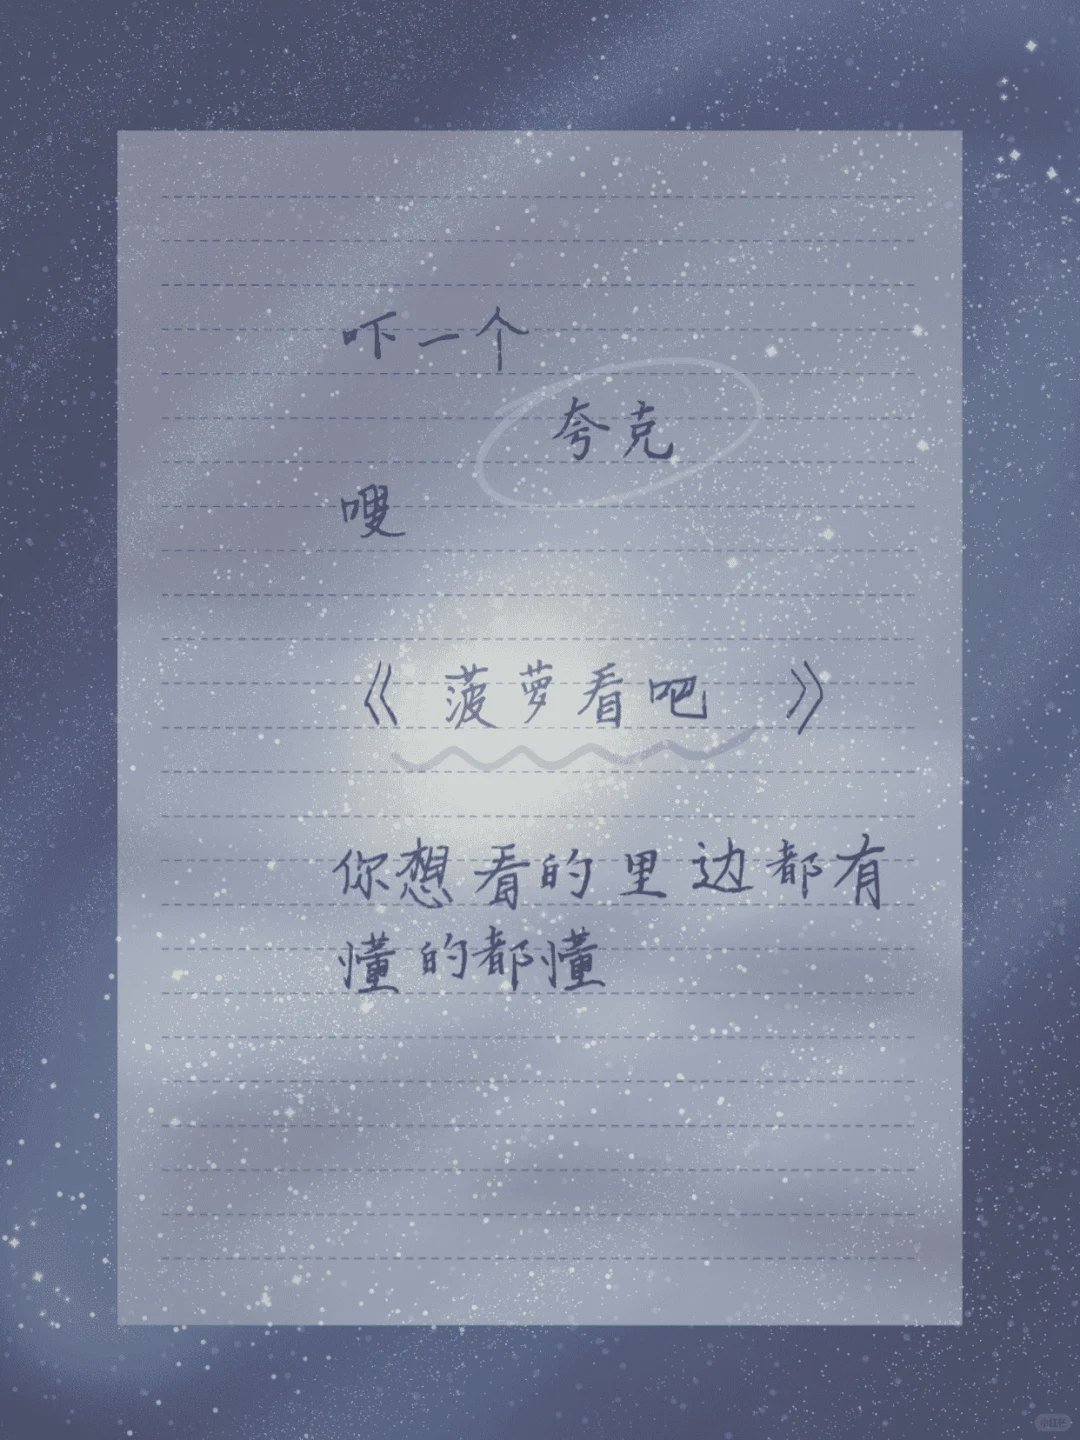 吓一个
夸克
嗖
《菠萝看吧 》
你想看的里边都有
懂的都懂
小红书